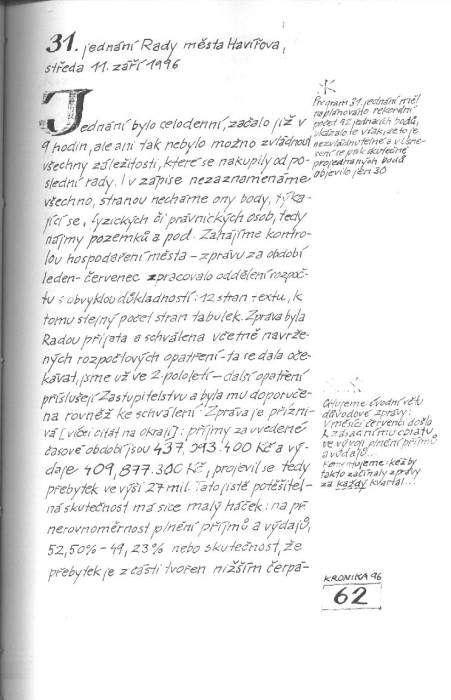 31. jednání Rady města Havířova,
středa 11. září 1996
Jednání bylo celodenní, začalo již v
9 hodin, ale ani tak nebylo možno zvládnout
všechny záležitosti, které se nakupily od po-
slední rady. I v zápise nezaznamenáme
všechno, stranou necháme ony body, týka-
jící se, fyzických či právnických osob, tedy
nájmy pozemků a pod. Zahájíme kontro-
lou hospodaření města - zprávu za období
leden - červenec zpracovalo oddělení rozpoč-
tu s obvyklou důkladností: 12 stran textu, k
tomu stejný počet stran tabulek. Zpráva byla
Radou přijata a schválena včetně navrže-
ných rozpočtových opatření - ta se dala oče-
kávat, jsme už ve 2. pololetí - další opatření
přísluší Zastupitelstvu a byla mu doporuče-
na rovněž ke schválení. Zpráva je přízni-
vá [viz citát na okraji]: příjmy za uvedené
časové období jsou 437,093.400 Kč a vý-
daje 409,877.300 Kč, projevil se tedy
přebytek ve výši 27 mil. Tato jistě potěšitel-
ná skutečnost má sice malý háček: na př.
nerovnoměrnost plnění příjmů a výdajů,
52,50% - 49,23% nebo skutečnost, že
přebytek je z části tvořen nižším čerpá-
Program 31. jednání měl
naplánováno rekordní
počet 92 jednacích bodů,
ukázalo se však, že to je
nezvládnutelné a v Usne-
sení se pak skutečně
projednaných bodů
objevilo jen 30
Citujeme úvodní větu
důvodové zprávy:
V měsíci červenci došlo
k zásadnímu obratu
ve vývoji plnění příjmů
a výdajů...
Komentujeme: kéž by
takto začínaly zprávy
za každý kvartál...
KRONIKA 96
62